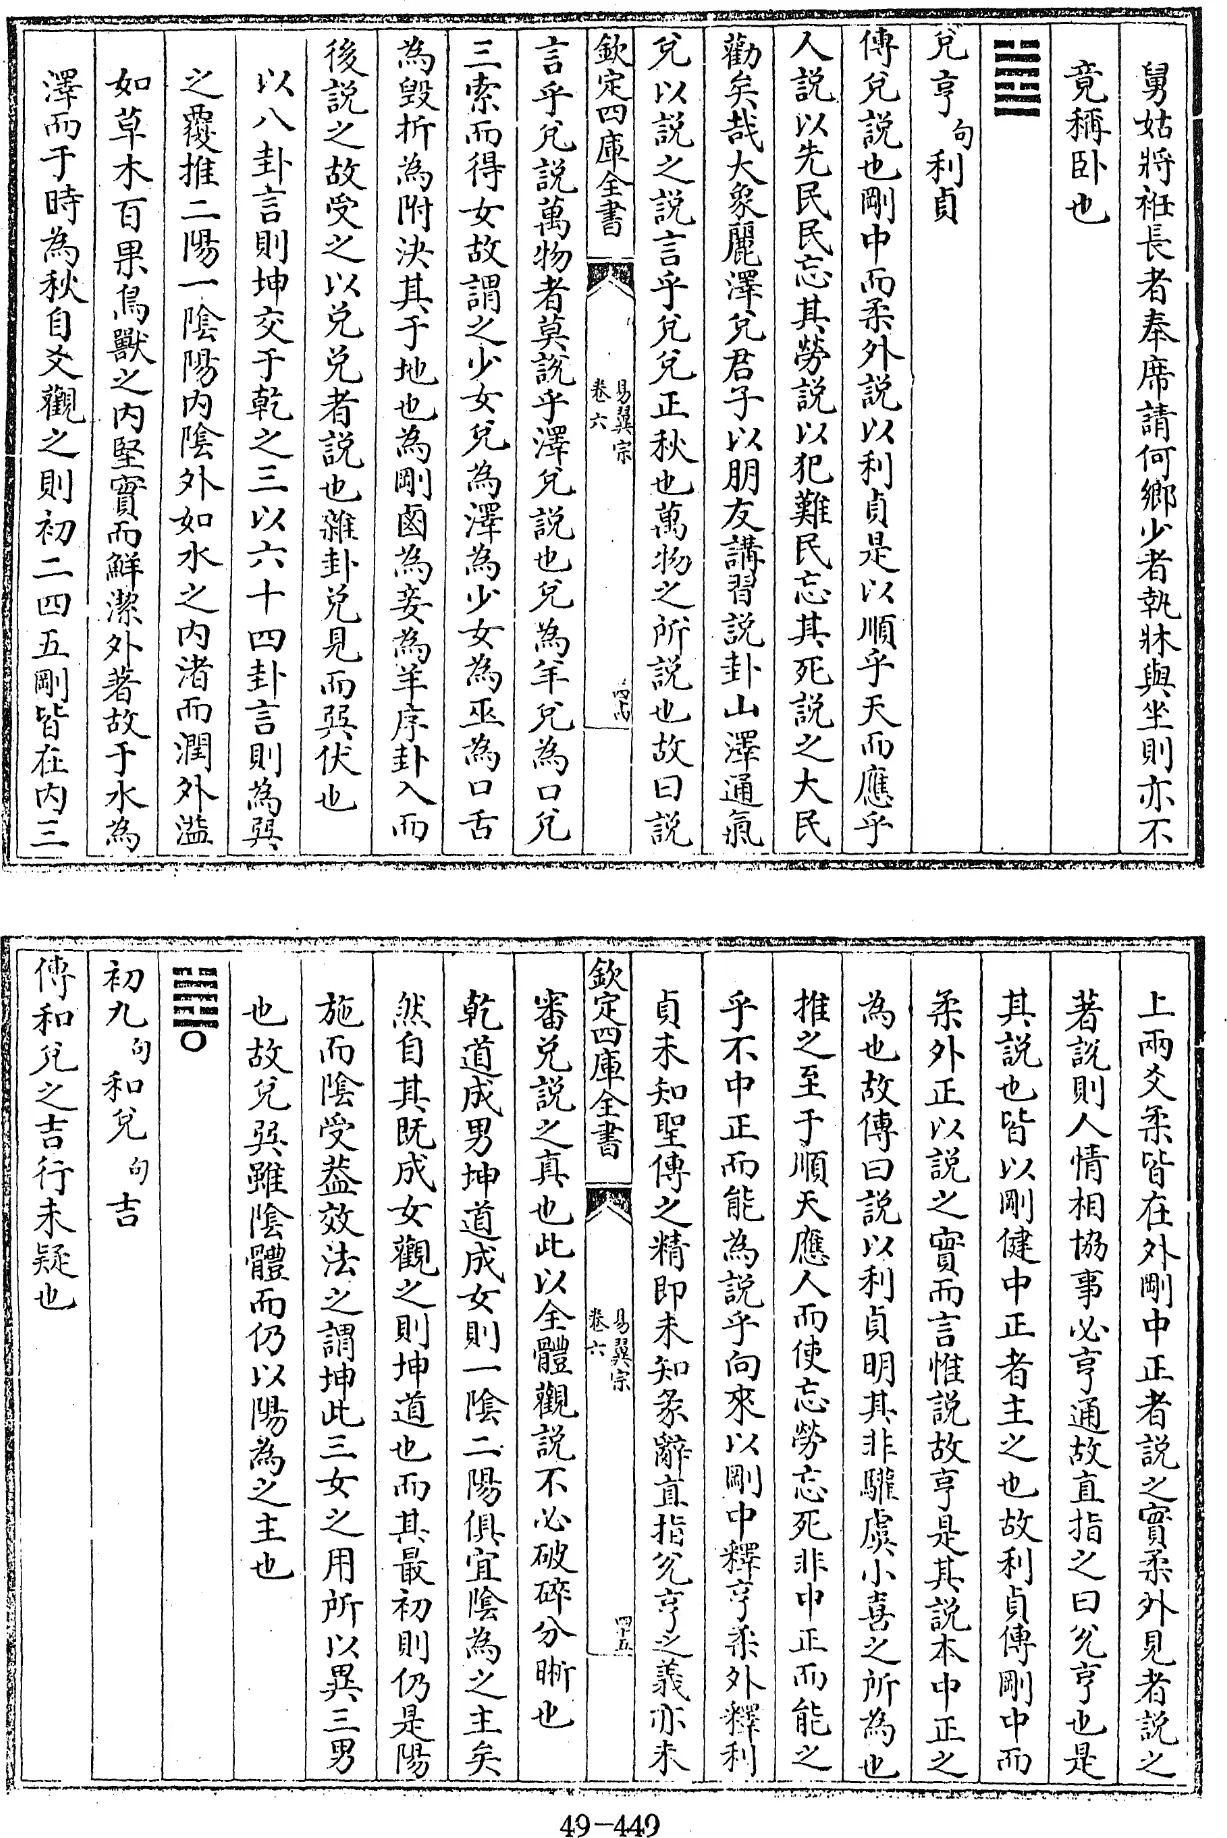 舅姑將袵長者奉席請何鄉少者執牀與坐則亦不
竟稱卧也
兌亨句利貞
傳兌說也剛中而柔外說以利貞是以順乎天而應乎
人說以先民民忘其勞說以犯難民忘其死說之大民
勸矣哉大象麗澤兌君子以朋友講習說卦山澤通氣
兌以說之說言乎兌兌正秋也萬物之所說也故曰說
欽定四庫全書
易翼宗
卷六
四十四
言乎兌說萬物者莫說乎澤兌說也兌為羊兌為口兌
三索而得女故謂之少女兌為澤為少女為巫為口舌
為毀折為附決其于地也為剛鹵為妾為羊序卦入而
後說之故受之以兌兌者說也雜卦兌見而巽伏也
以八卦言則坤交于乾之三以六十四卦言則為巽
之覆推二陽一陰陽內陰外如水之內渚而潤外溢
如草木百果鳥獸之內堅實而鮮潔外著故于水為
澤而于時為秋自爻觀之則初二四五剛皆在內三
上兩爻柔皆在外剛中正者說之實柔外見者說之
著說則人情相協事必亨通故直指之曰兌亨也是
其說也皆以剛健中正者主之也故利貞傳剛中而
柔外正以說之實而言惟說故亨是其說本中正之
為也故傳曰說以利貞明其非驩虞小喜之所為也
推之至于順天應人而使忘勞忘死非中正而能之
乎不中正而能為說乎向來以剛中釋亨柔外釋利
貞未知聖傳之精即未知彖辭直指兌亨之義亦未
欽定四庫全書
易翼宗
卷六
四十五
審兌說之真也此以全體觀說不必破碎分晰也
乾道成男坤道成女則一陰二陽俱宜陰為之主矣
然自其既成女觀之則坤道也而其最初則仍是陽
施而陰受葢效法之謂坤此三女之用所以異三男
也故兌巽雖陰體而仍以陽為之主也
初九句和兌句吉
傳和兌之吉行未疑也
49-449